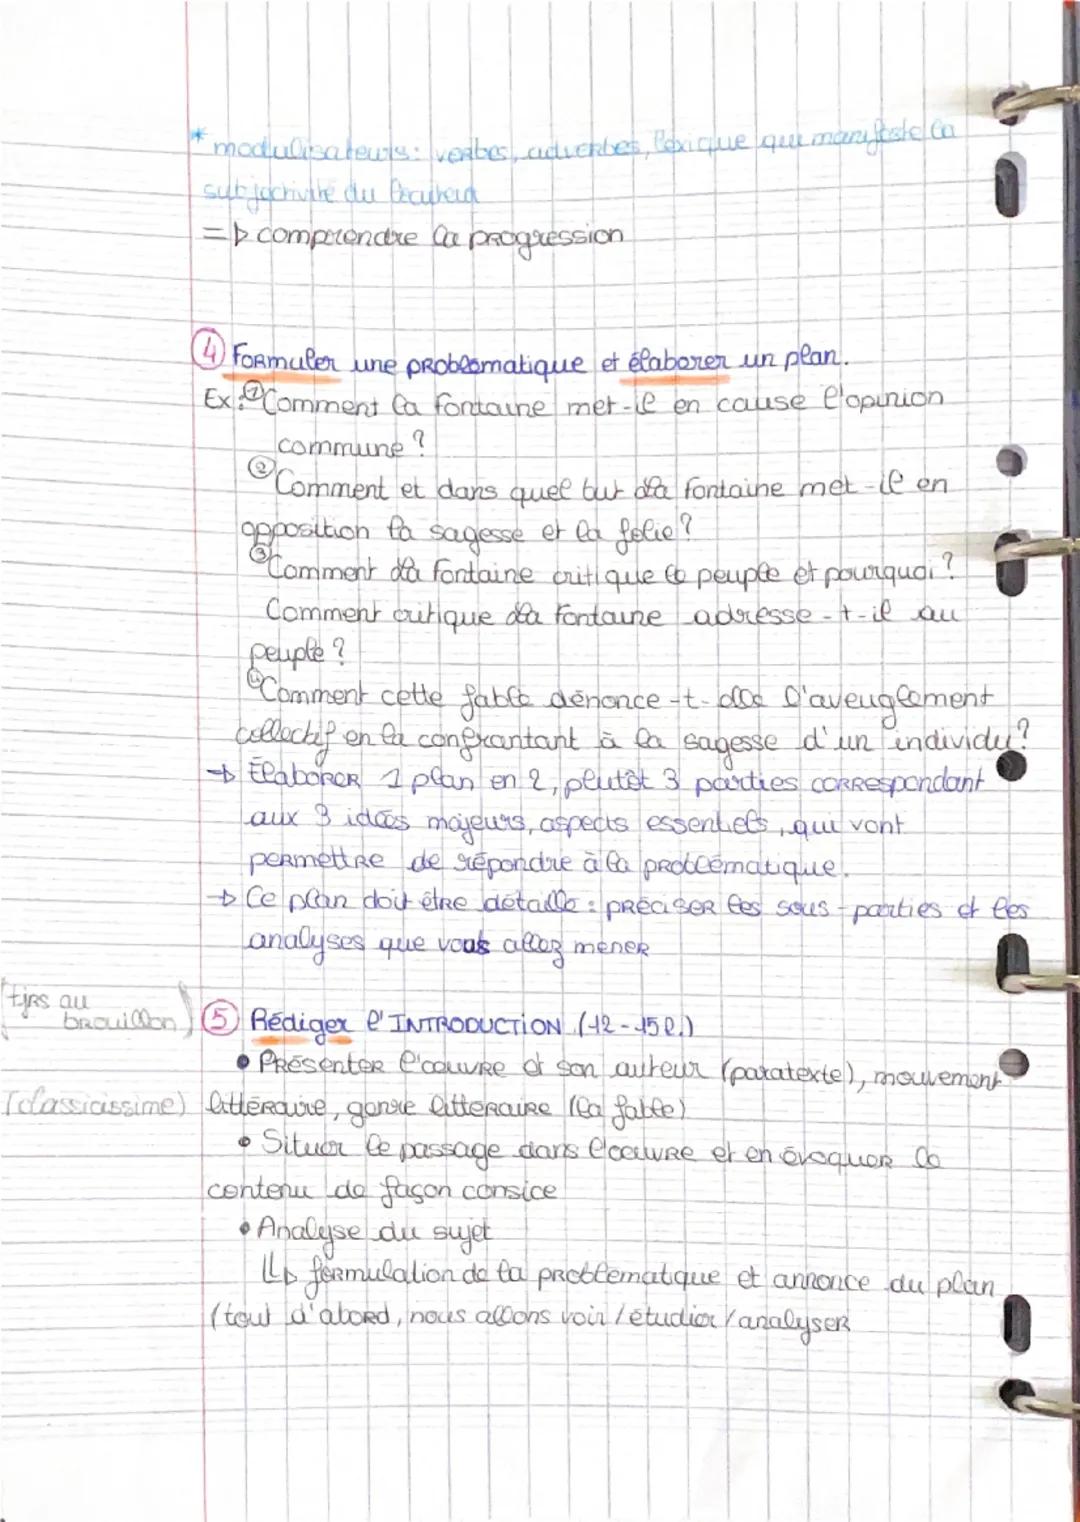 * modulisateurs : verbes, adverbes, lexique qui manifeste la
subjectivité du
=> comprendre la progression
④ Formuler une problématique et élaborer un plan.
Ex : ① Comment la Fontaine met-il en cause l'opinion
commune ?
② Comment et dans quel but la Fontaine met-il en
opposition la sagesse et la folie ?
③ Comment la Fontaine critique le peuple et pourquoi ?
Comment critique la Fontaine adresse-t-il au
peuple ?
④ Comment cette fable dénonce-t-elle l'aveuglement
collectif en la confrontant à la sagesse d'un individu ?
→ Élaborer 1 plan en 2, plutôt 3 parties correspondant
aux 3 idées majeurs, aspects essentiels, qui vont
permettre de répondre à la problématique.
→ Ce plan doit être détaillé : préciser les sous-parties et les
analyses que vous allez mener
(tjrs au
brouillon)
⑤ Rédiger l'INTRODUCTION (12-15l.)
• Présenter l'œuvre et son auteur (paratexte), mouvement
(classicissime) littéraire, genre littéraire (la fable)
• Situer le passage dans l'œuvre et en évoquer le
contenu de façon consice
• Analyse du sujet
↳ formulation de la problématique et annonce du plan
(tout d'abord, nous allons voir / étudier / analyser